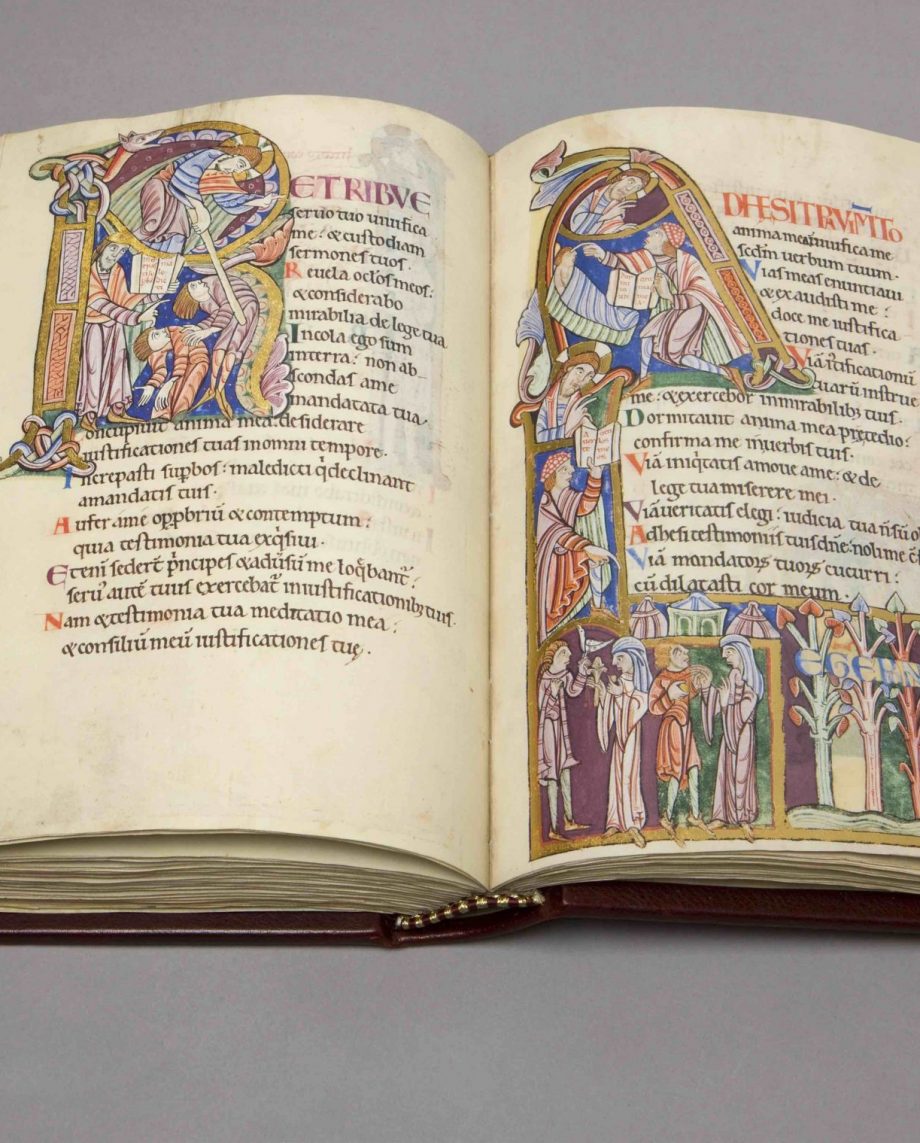 RETRIBVE
seruo tuo uiuifica
me: & custodiam
sermones tuos.
Reuela oclos meos:
& considerabo
mirabilia de lege tua
Incola ego sum
interra: non ab-
scondas ame
mandatata tua.
Concupiuit anima mea desiderare
iustificationes tuas inomni tempore.
Increpasti sup̄bos: maledicti q̄ declinant
amandatis tuis.
Aufer ame opp̄briū & contemptum:
quia testimonia tua exq̄siui.
Etenī sedert̄ p̄ncipes & adusū me loq̄bant̄:
seru᾽ autē tuus exercebat̄ iniustificationib; tuis.
Nam & testimonia tua meditatio mea:
& consiliū meū iustificationes tuę.
ADHĘSIT PAVIM̄TO
anima mea: uiuifica me
scdm̄ uerbum tuum.
Vias meas enuntiaui
& exaudisti me:
doce me iustifica
tiones tuas.
Viā iustificationū
tuarū instrue
me: & exercebor inmirabilib; tuis.
Dormitauit anima mea p̄ tedio:
confirma me inuerbis tuis.
Viā iniq̄tatis amoue ame: & de
lege tua miserere mei.
Viā ueritatis elegi: iudicia tua
Adhesi testimoniis tuis dn̄e: noli me
Viā mandatorꝫ tuorꝫ cucurri:
cū dilatasti cor meum.
EGEM